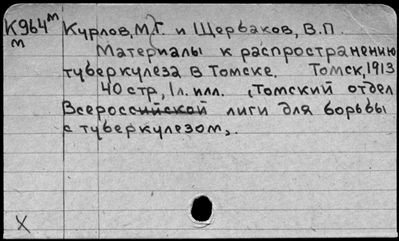 К964м Курлов, М.Г. и Щербаков, В.П.
м
Материалы к распространению
туберкулеза в Томске. Томск, 1913
40 стр, 1л. илл. (Томский отдел
Всероссийской лиги для борьбы
с туберкулезом).
X